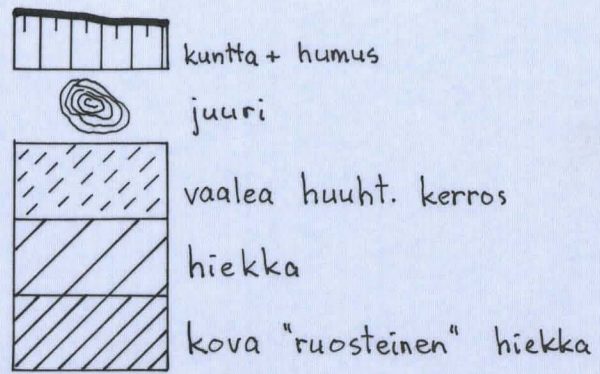 kuntta + humus
juuri
vaalea huuht. kerros
hiekka
kova "ruosteinen" hiekka